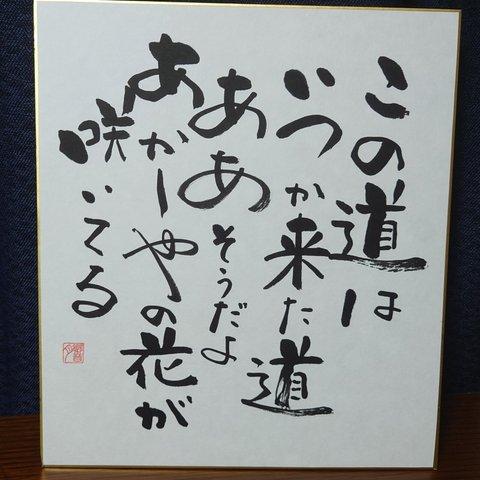 この道は
いつか来た道
ああそうだよ
あかしやの花が
咲いてる